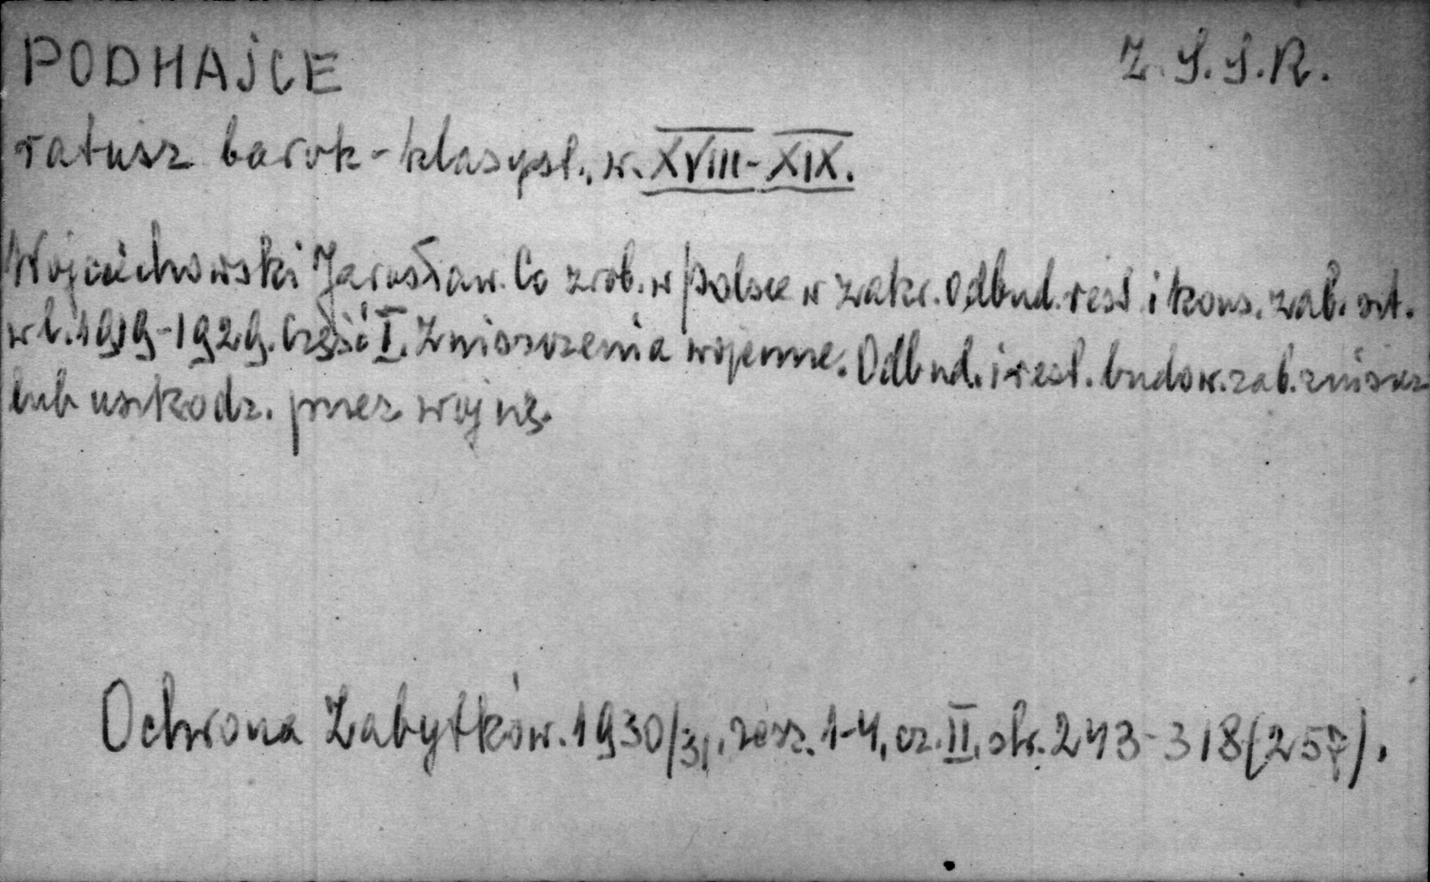 PODHAJCE Z.S.S.R.
ratusz barok-klasycyst., w. XVIII-XIX.
Wojciechowski Jarosław. Co zrob. w Polsce w zakr. Odbud. rest i kons. zab. szt.
w l. 1919-1929. Część I. Zniszczenia wojenne. Odbud. i rest. budow. zab. zniszcz
lub uszkodz. przez wojnę.
Ochrona Zabytków. 1930/31, zesz. 1-4, cz. II, str. 243-318 (257).